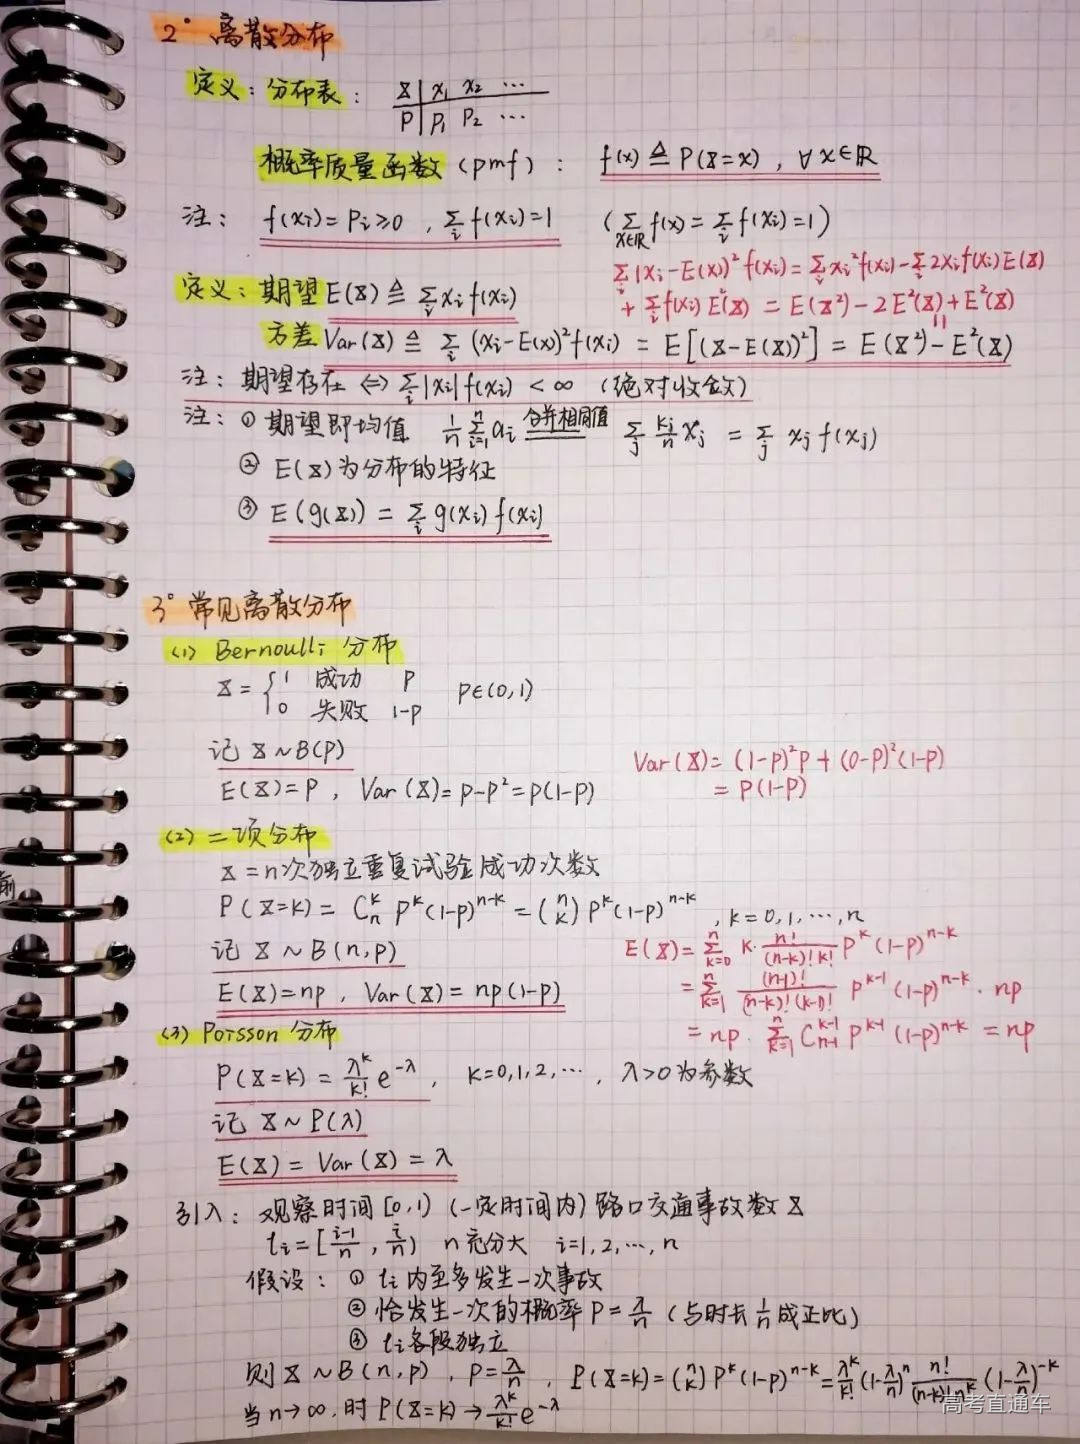 2° 离散分布
定义：分布表： X | x₁ x₂ ⋯
P | p₁ p₂ ⋯
概率质量函数 (pmf)： f(x) ≜ P(X=x) , ∀x∈ℝ
注： f(xᵢ)=pᵢ≥0 , Σᵢ f(xᵢ)=1 (Σ_{x∈ℝ} f(x)=Σᵢ f(xᵢ)=1)
Σᵢ(xᵢ-E(x))² f(xᵢ)=Σᵢ xᵢ² f(xᵢ)-Σᵢ 2xᵢ f(xᵢ)E(X)
+ Σᵢ f(xᵢ) E²(X) = E(X²)-2E²(X)+E²(X)
定义：期望 E(X) ≜ Σᵢ xᵢ f(xᵢ)
方差 Var(X) ≜ Σᵢ (xᵢ-E(x))² f(xᵢ) = E[(X-E(X))²] = E(X²)-E²(X)
注：期望存在 ⇔ Σᵢ |xᵢ| f(xᵢ) < ∞ (绝对收敛)
注：① 期望即均值 1/n Σ_{i=1}^{n} aᵢ 合并相同值 Σⱼ kⱼ/n xⱼ = Σⱼ xⱼ f(xⱼ)
② E(X)为分布的特征
③ E(g(X)) = Σᵢ g(xᵢ) f(xᵢ)
3° 常见离散分布
(1) Bernoulli 分布
X = { 1 成功 p
0 失败 1-p p∈(0,1)
记 X ~ B(p)
E(X)=p , Var(X)=p-p²=p(1-p)
Var(X)= (1-p)²p + (0-p)²(1-p)
= p(1-p)
(2) 二项分布
X = n次独立重复试验成功次数
P(X=k) = Cₙᵏ pᵏ(1-p)ⁿ⁻ᵏ = (n k) pᵏ(1-p)ⁿ⁻ᵏ , k=0,1,⋯,n
记 X ~ B(n,p)
E(X)=np , Var(X)=np(1-p)
E(X)= Σ_{k=0}^{n} k· n!/((n-k)!k!) pᵏ(1-p)ⁿ⁻ᵏ
= Σ_{k=1}^{n} (n-1)!/((n-k)!(k-1)!) pᵏ⁻¹(1-p)ⁿ⁻ᵏ · np
= np · Σ_{k=1}^{n} C_{n-1}^{k-1} pᵏ⁻¹(1-p)ⁿ⁻ᵏ = np
(3) Poisson 分布
P(X=k) = λᵏ/k! e^{-λ} , k=0,1,2,⋯ , λ>0为参数
记 X ~ P(λ)
E(X) = Var(X) = λ
引入：观察时间[0,1) (一定时间内) 路口交通事故数 X
tᵢ=[(i-1)/n , i/n) n充分大 i=1,2,⋯,n
假设：① tᵢ内至多发生一次事故
② 恰发生一次的概率 p = λ/n (与时长 1/n 成正比)
③ tᵢ各段独立
则 X ~ B(n,p) , p=λ/n , P(X=k)=(n k) pᵏ(1-p)ⁿ⁻ᵏ=λᵏ/k! (1-λ/n)ⁿ n!/((n-k)!nᵏ) (1-λ/n)⁻ᵏ
当 n→∞ 时 P(X=k) → λᵏ/k! e^{-λ}
高考直通车